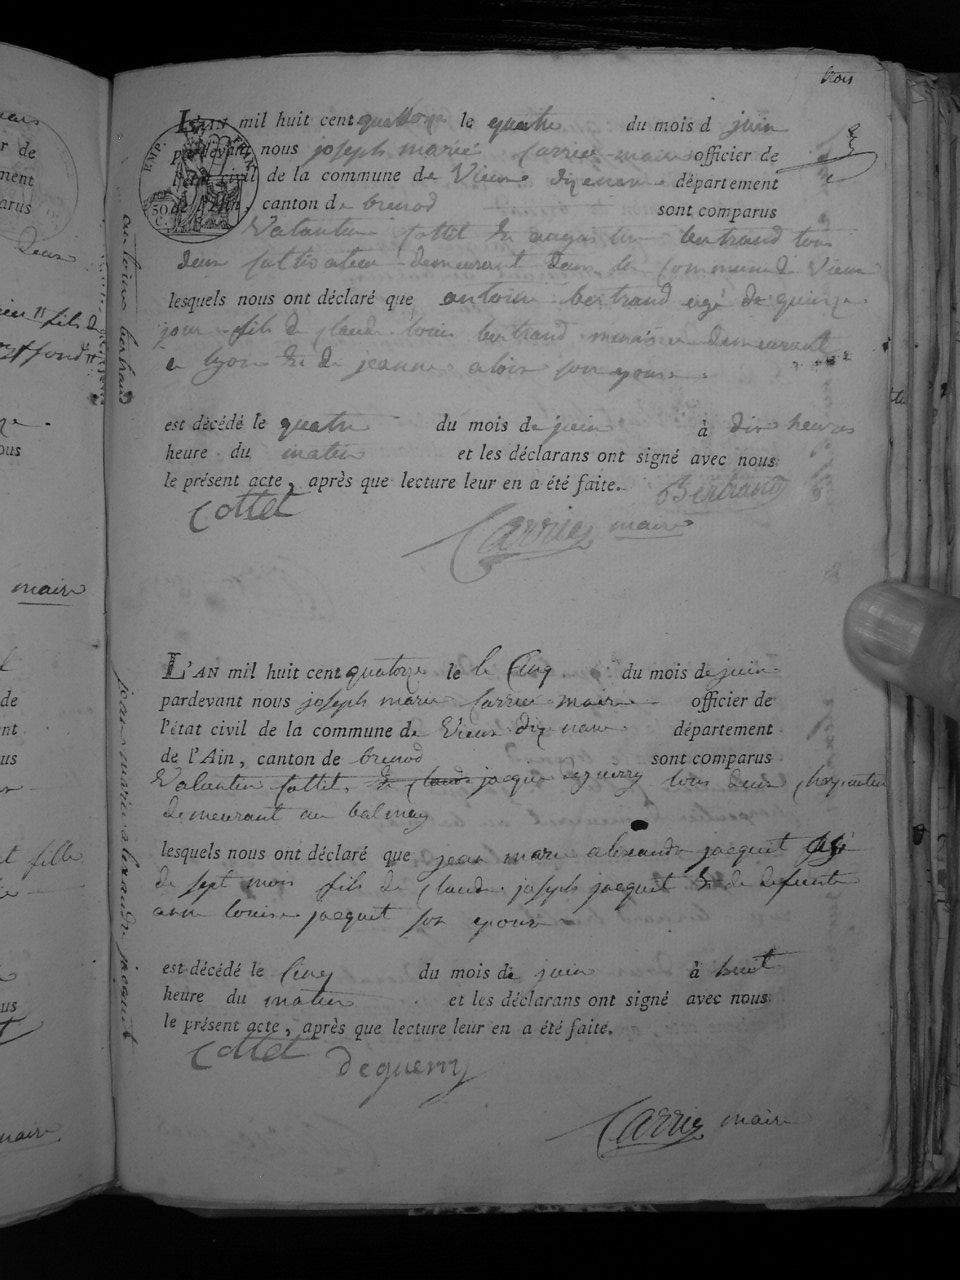 trois
L'AN mil huit cent quattorze le quatre du mois d juin
pardevant nous joseph marie Carrier maire officier de
l'état civil de la commune de Vieux dizenave département
de l'Ain, canton de brenod sont comparus
Valantin Cottet & augustin bertrand tous
deux Cultivateur demeurant dans la Commune de Vieux
lesquels nous ont déclaré que antoine bertrand agé de quinze
jour fils de Claude louis bertrand menusier demeurant
a lyon & de jeanne aloin son epouse.
est décédé le quatre du mois de juin à dix heures
heure du matin et les déclarans ont signé avec nous
le présent acte, après que lecture leur en a été faite. Bertrand
Cottet
Carrier maire
antoine bertrand
L'AN mil huit cent quatorze le le Cinq du mois de juin
pardevant nous joseph marie Carrier maire officier de
l'état civil de la commune de Vieux dize nave département
de l'Ain, canton de brenod sont comparus
Valantin Cottet, & Claude jacque deguerry tous deux Charpentier
demeurant au balmay
lesquels nous ont déclaré que jean marie alexandre jacquet agé
de sept mois fils de Claude joseph jacquet & de defunte
anne louise jacquet son epouse
est décédé le Cinq du mois de juin à huit
heure du matin et les déclarans ont signé avec nous
le présent acte, après que lecture leur en a été faite.
Cottet deguerry
Carrier maire
jean marie alexandre jacquet
maire